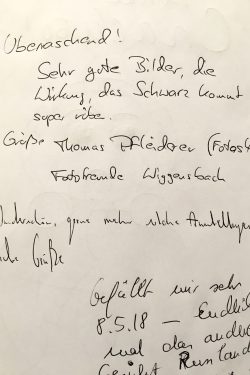 Überraschend!
Sehr gute Bilder, die
Wirkung, das Schwarz kommt
super rüber.
Grüße Thomas Pfleiderer (Fotos
Fotofreunde Wiggensbach
gerne mehr solche Ausstellungen
Grüße
Gefällt mir sehr
8.5.18 – Endlich
mal das andere
Gesicht Russland